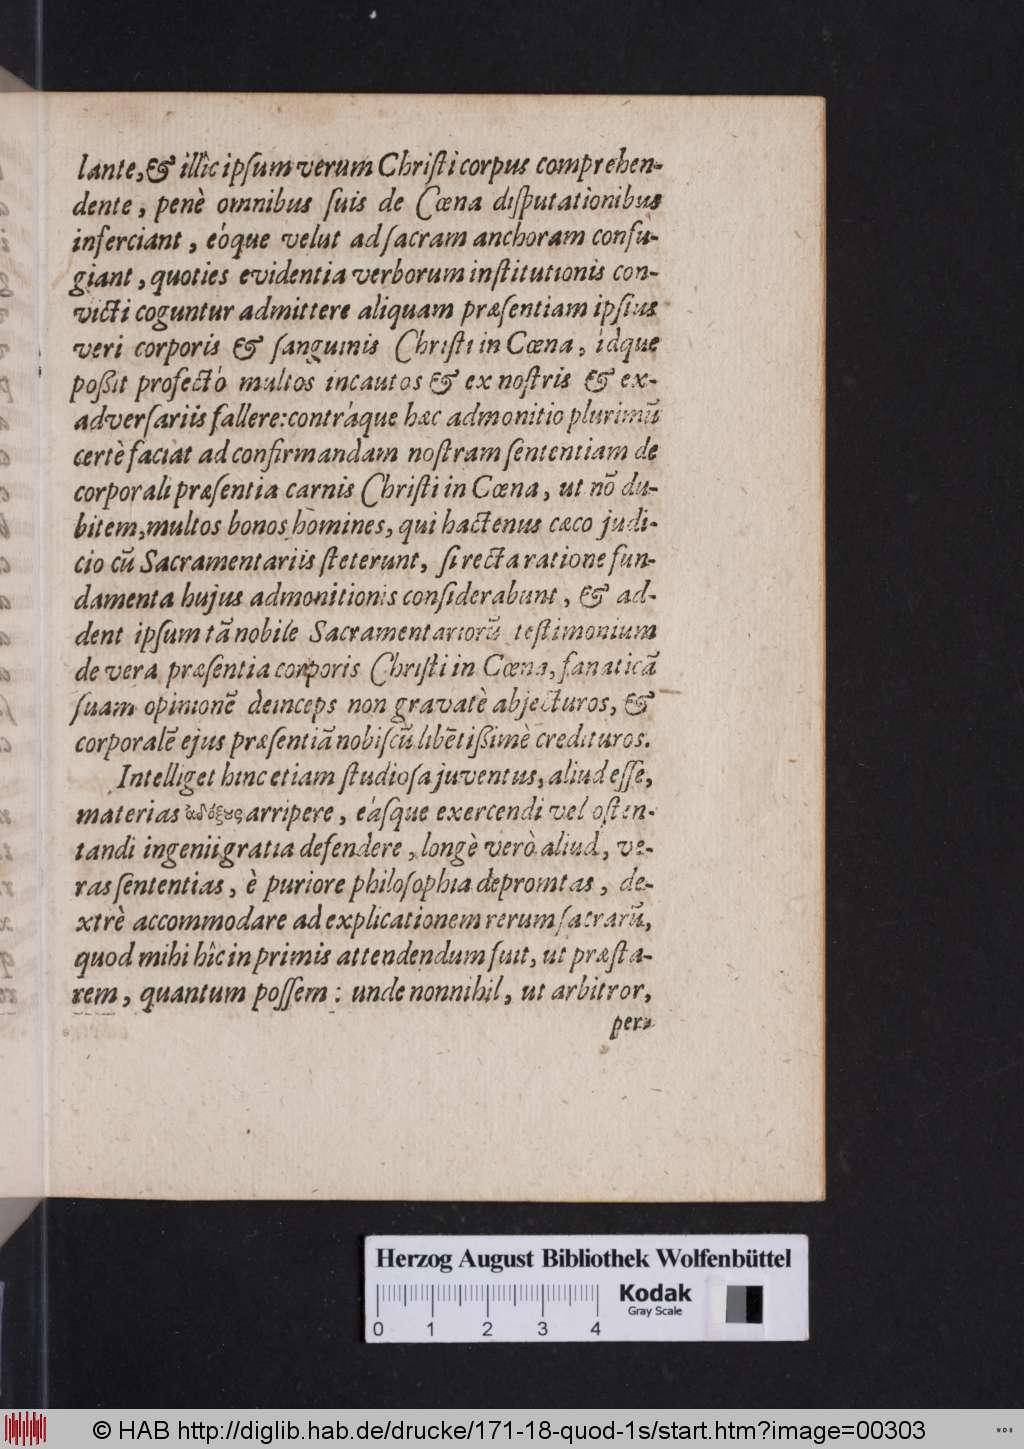 lante, & illîc ipſum verum Chriſti corpus comprehen-
dente, penè omnibus ſuis de Cœna diſputationibus
inferciant, eóque velut ad ſacram anchoram confu-
giant, quoties evidentia verborum inſtitutionis con-
victi coguntur admittere aliquam præſentiam ipſius
veri corporis & ſanguinis Chriſti in Cœna, ídque
poßit profectó multos incautos & ex noſtris & ex-
adverſariis fallere: contráque hæc admonitio plurimũ
certè faciat ad confirmandam noſtram ſententiam de
corporali præſentia carnis Chriſti in Cœna, ut nõ du-
bitem, multos bonos homines, qui hactenus cæco judi-
cio cũ Sacramentariis ſteterunt, ſi recta ratione fun-
damenta hujus admonitionis conſiderabunt, & ad-
dent ipſum tã nobile Sacramentariorũ teſtimonium
de vera præſentia corporis Chriſti in Cœna, fanaticã
ſuam opinionẽ deinceps non gravatè abjecturos, &
corporalẽ ejus præſentiã nobiſcũ libẽtißimè credituros.
Intelliget hinc etiam ſtudioſa juventus, aliud eſſe,
materias ἀδόξους arripere, eáſque exercendi vel oſten-
tandi ingenii gratia defendere, longè verò aliud, ve-
ras ſententias, è puriore philoſophia depromtas, de-
xtrè accommodare ad explicationem rerum ſacrarũ,
quod mihi hîc in primis attendendum fuit, ut præſta-
rem, quantum poſſem: unde nonnihil, ut arbitror,
per-
Herzog August Bibliothek Wolfenbüttel
Kodak
Gray Scale
0 1 2 3 4
© HAB http://diglib.hab.de/drucke/171-18-quod-1s/start.htm?image=00303